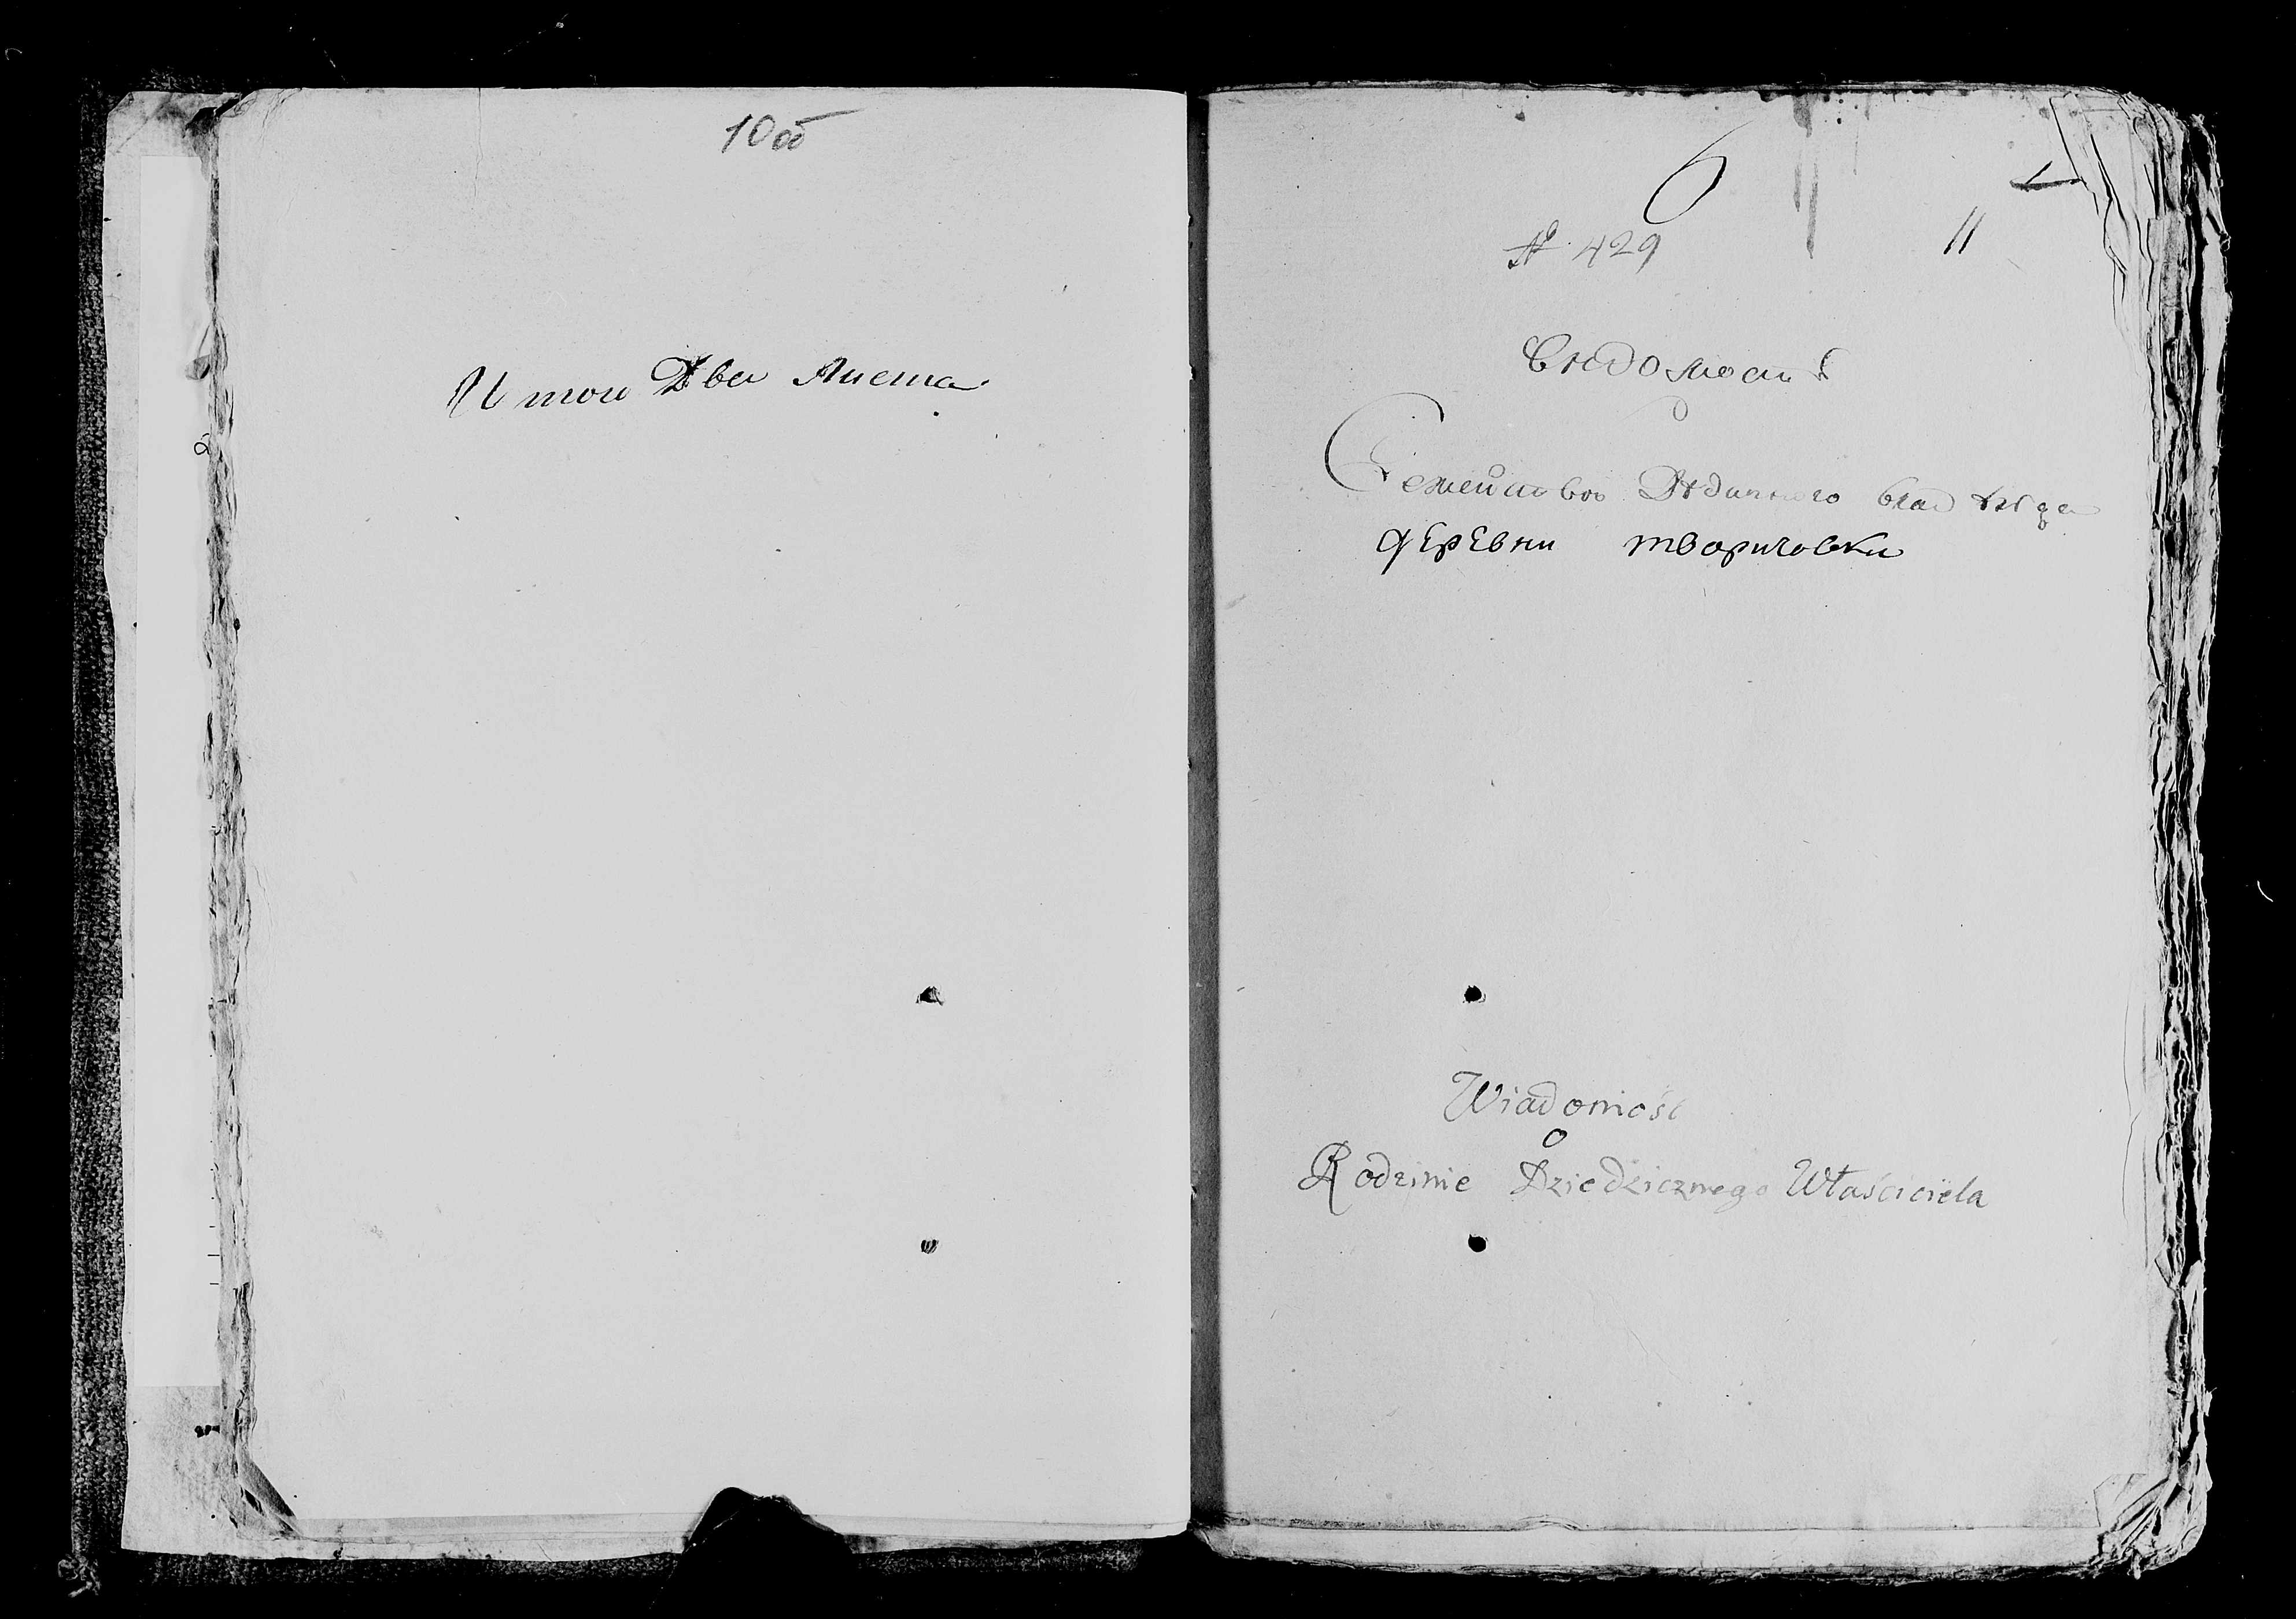 10об
Итои Два Листа
6
11
№ 429
Вѣдомость
О
Семейство Дѣдичного владѣлца
деревни творичовки
Wiadomość
O
Rodzinie Dziedzicznego Właściciela